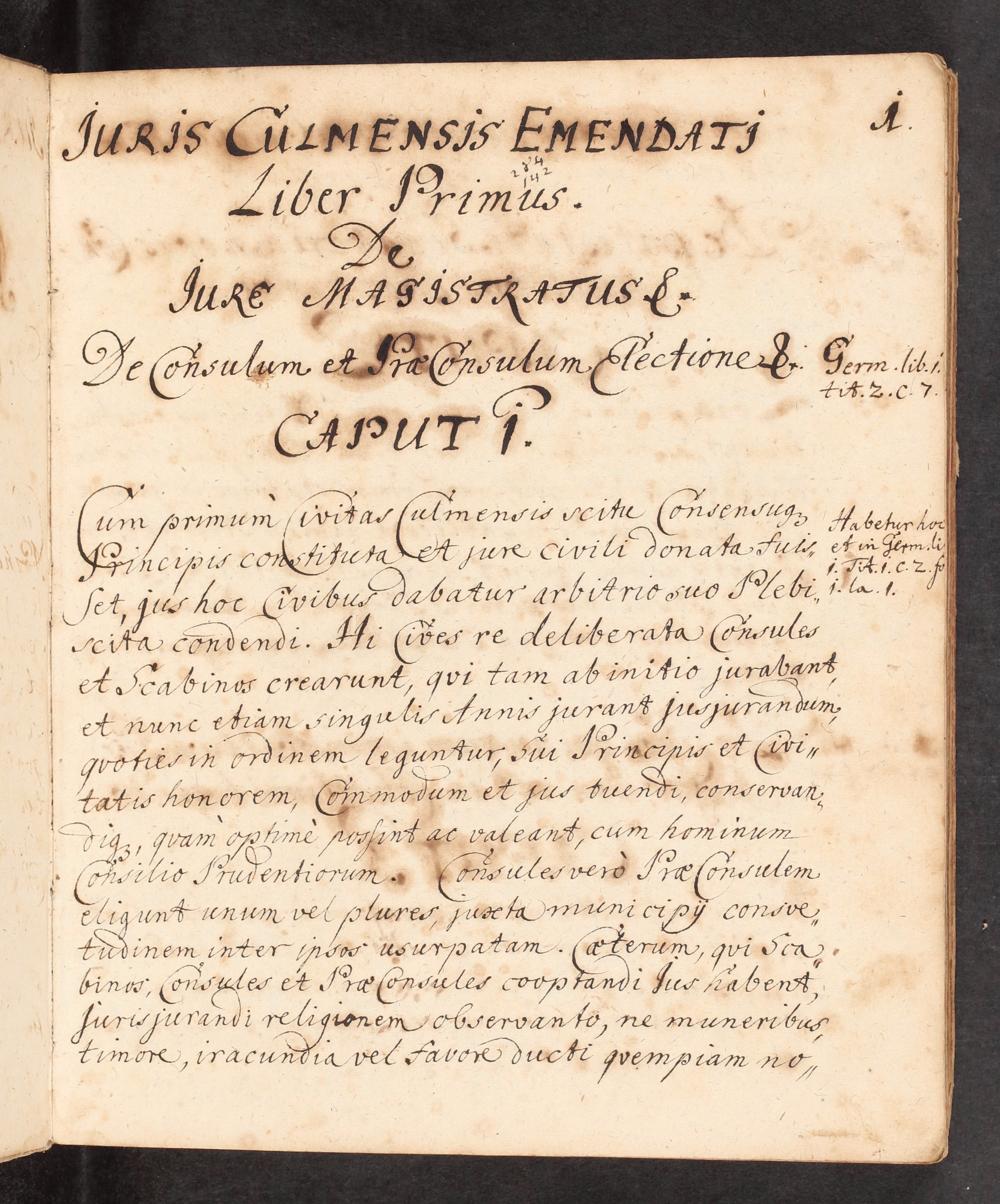 1.
JURIS CULMENSIS EMENDATI
284
142
Liber Primus.
De
JURE MAGISTRATUS &.
De Consulum et PræConsulum Electione &.
Germ. lib. 1.
tit. 2. c. 7.
CAPUT 1.
Cum primùm Civitas Culmensis scitu Consensuq;
Principis constituta et jure civili donata fuis„
set, jus hoc Civibus dabatur arbitrio suo Plebi„
scita condendi. Hi Cives re deliberata Consules
et Scabinos crearunt, qvi tam ab initio jurabant,
et nunc etiam singulis Annis jurant jusjurandum,
qvoties in ordinem leguntur, sui Principis et Civi„
tatis honorem, Commodum et jus tuendi, conservan„
diq;, qvàm optimè possint ac valeant, cum hominum
Consilio Prudentiorum. Consules verò PræConsulem
eligunt unum vel plures, juxta municipij consve„
tudinem inter ipsos usurpatam. Cæterum, qvi Sca„
binos, Consules et PræConsules cooptandi Jus habent,
jurisjurandi religionem observanto, ne muneribus,
timore, iracundia vel favore ducti qvempiam no„
Habetur hoc
et in Germ. li
1. Tit. 1. c. 2. fo
1. la. 1.